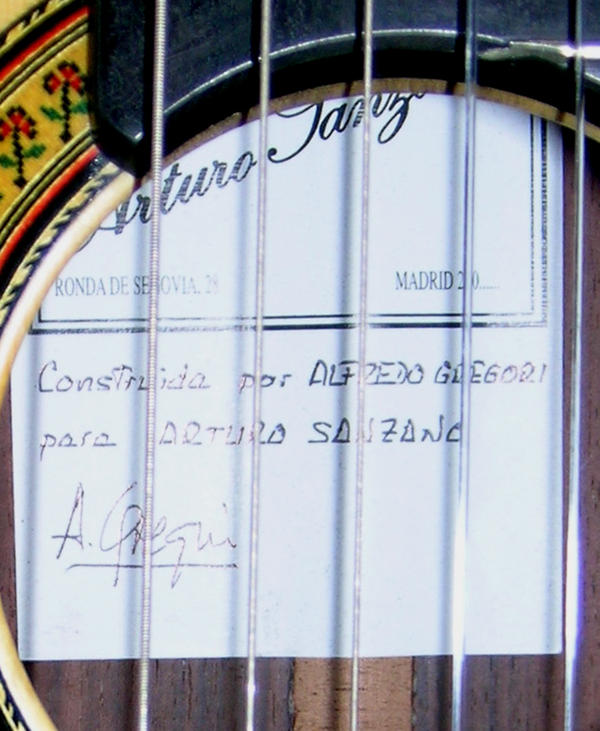 Arturo Sanz
RONDA DE SEGOVIA, 28 MADRID 200......
Construida por ALFREDO GREGORI
para ARTURO SANZANO
A. Gregori